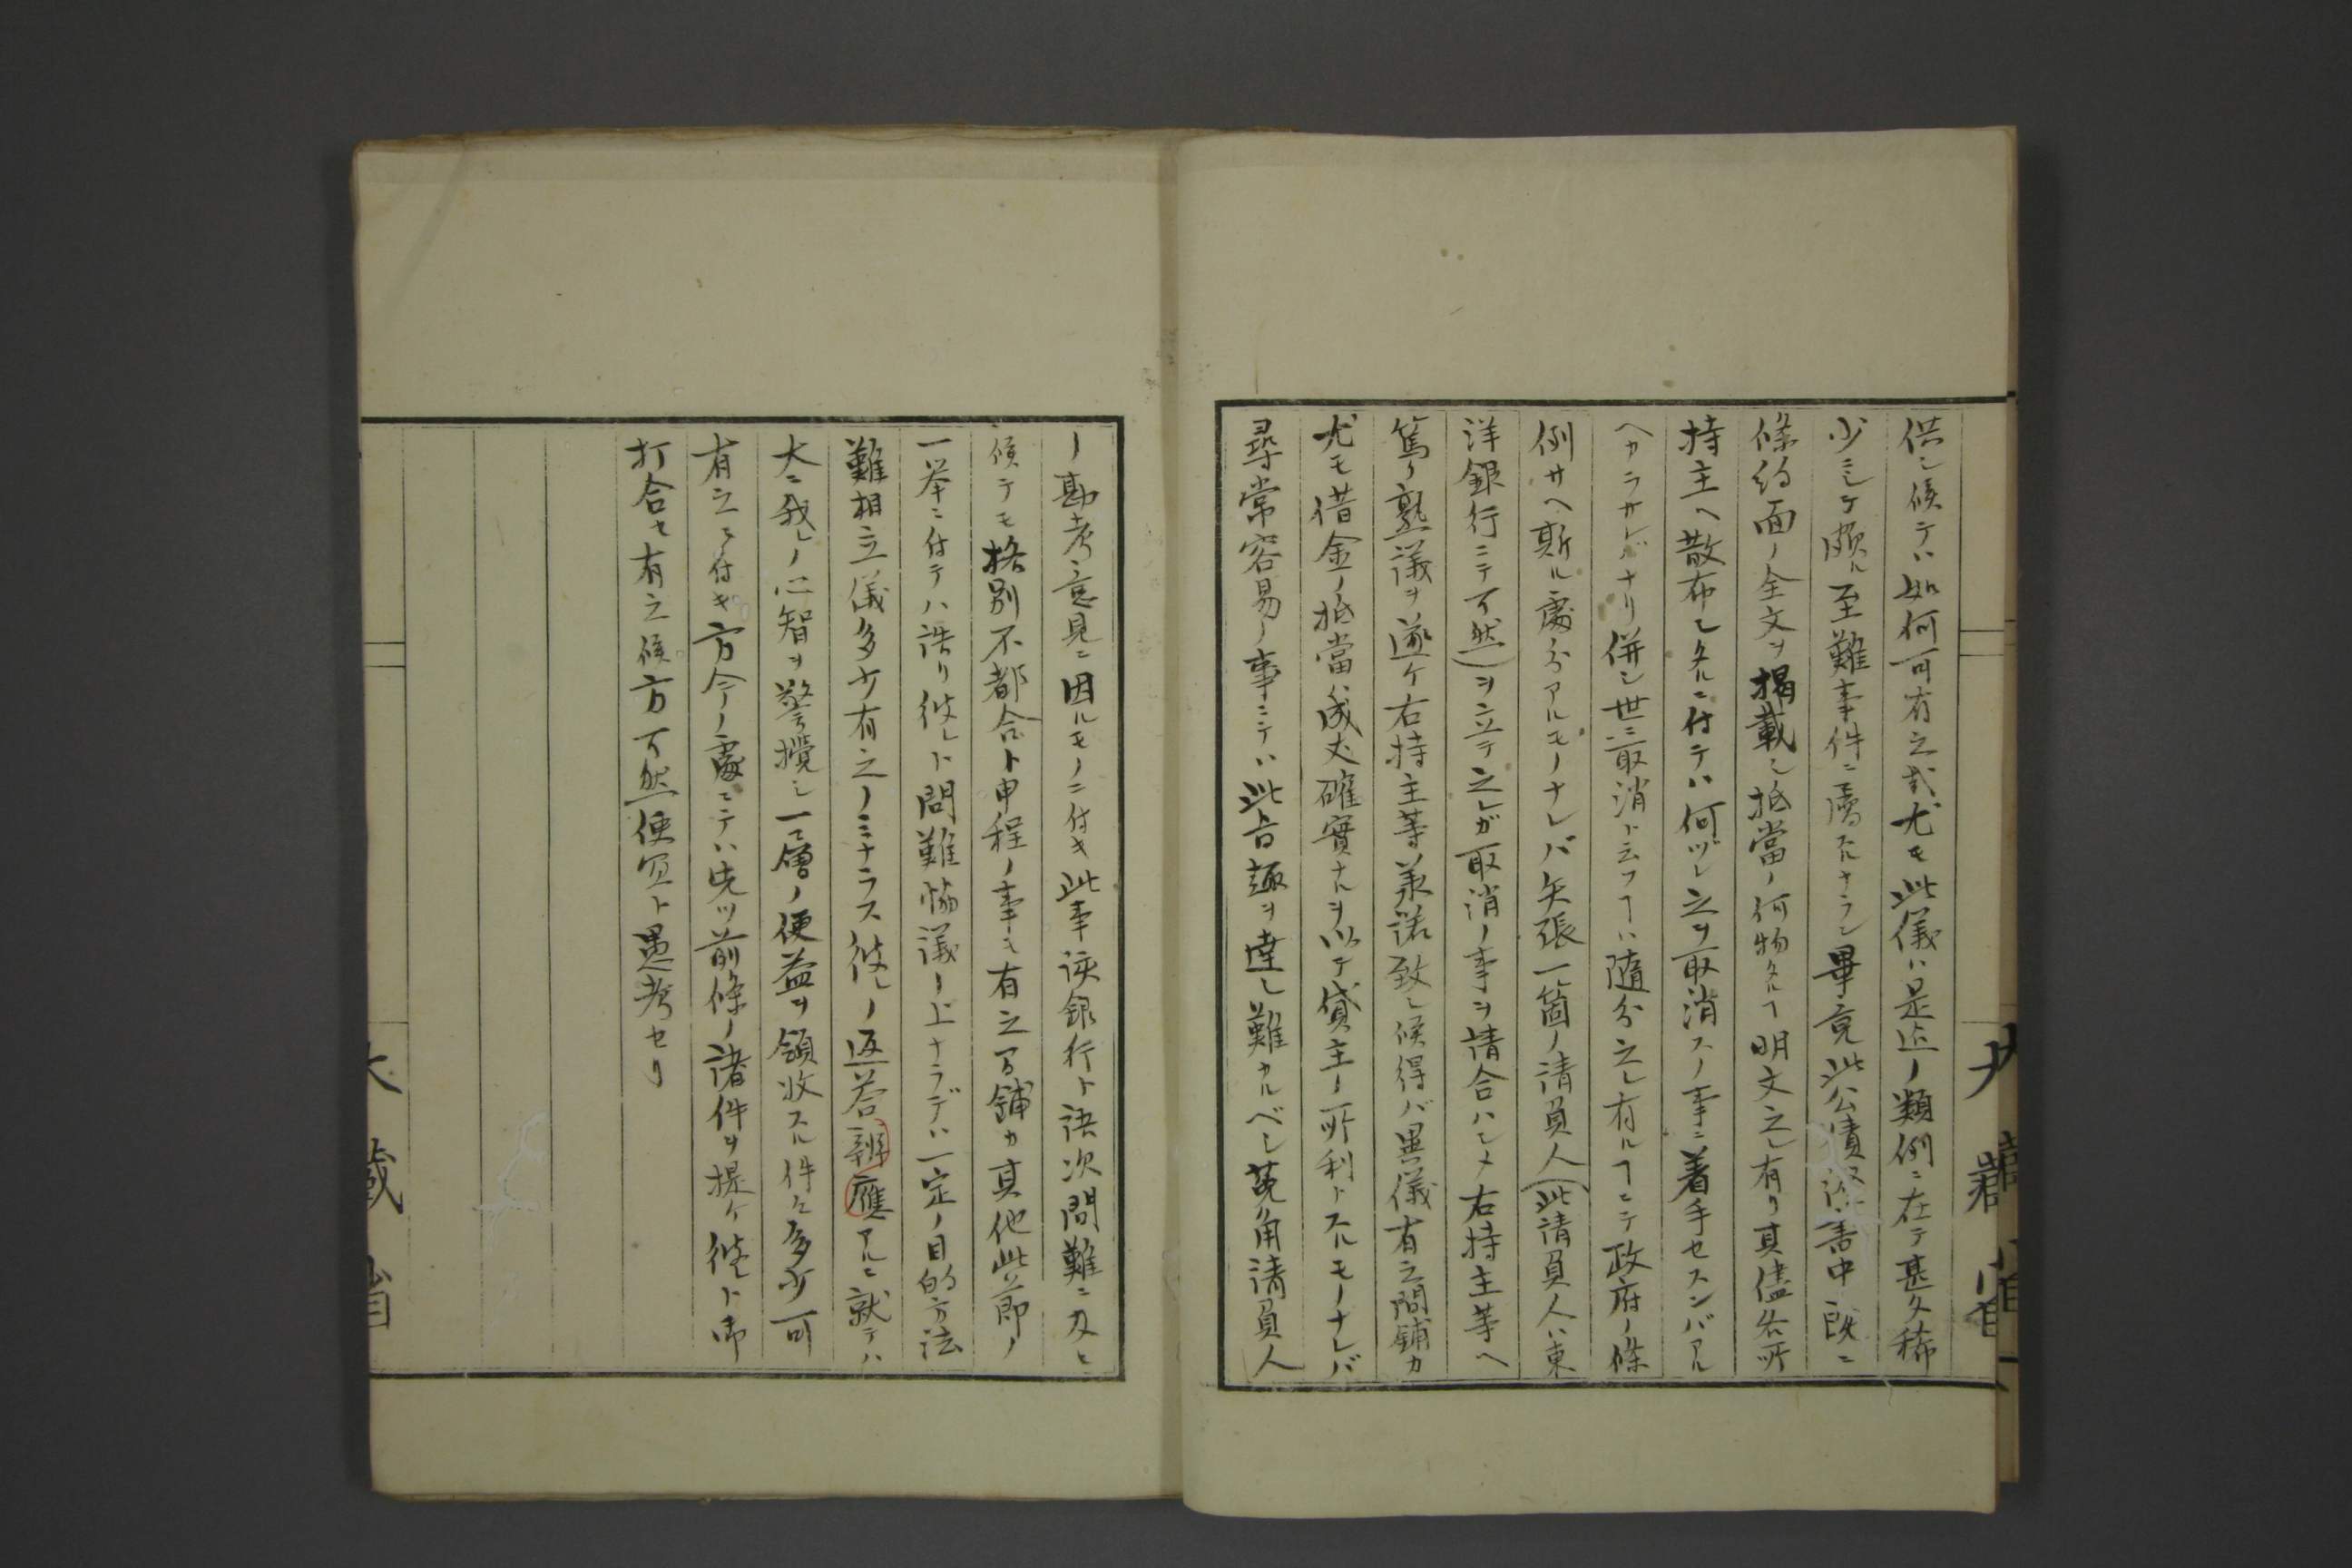 供シ候テハ如何可有之哉尤モ此儀ハ是迄ノ類例ニ在テ甚タ稀
少ニシテ頗ル至難事件ニ屬スルナラン畢竟此公債證書中既ニ
條約面ノ全文ヲ揭載シ抵當ノ何物タルヿ明文之レ有リ其儘各所
持主ヘ散布シタルニ付テハ何ヅレ之ヲ取消スノ事ニ着手セスンバアル
ヘカラサレバナリ併シ世ニ取消ト云フヿハ隨分之レ有ルヿニテ政府ノ條
例サヘ斯ル處分アルモノナレバ矢張一箇ノ請負人(此請負人ハ東
洋銀行ニテ可然)ヲ立テ之レガ取消ノ事ヲ請合ハシメ右持主等ヘ
篤ト熟議ヲ遂ケ右持主等承諾致シ候得バ異儀有之間鋪カ
尤モ借金ノ抵當ハ成丈確實ナルヲ以テ貸主ノ所利トスルモノナレバ
尋常容易ノ事ニテハ此旨趣ヲ達シ難カルベシ莵角請負人
ノ勘考意見ニ因ルモノニ付キ此事該銀行ト語次問難ニ及ヒ
候テモ格別不都合ト申程ノ事モ有之間鋪カ其他此節ノ
一举ニ付テハ誥リ彼レト問難協議ノ上ナラデハ一定ノ目的方法
難相立儀多少有之ノミナラス彼レノ返荅辨應アルニ就テハ
大ニ我レノ心智ヲ警攪シ一層ノ便益ヲ領收スル件々多少可
有之ニ付キ方今ノ處ニテハ先ツ前條ノ諸件ヲ提ケ彼レト御
打合セ有之候方可然便宜ト愚考セリ
大藏省
大藏省